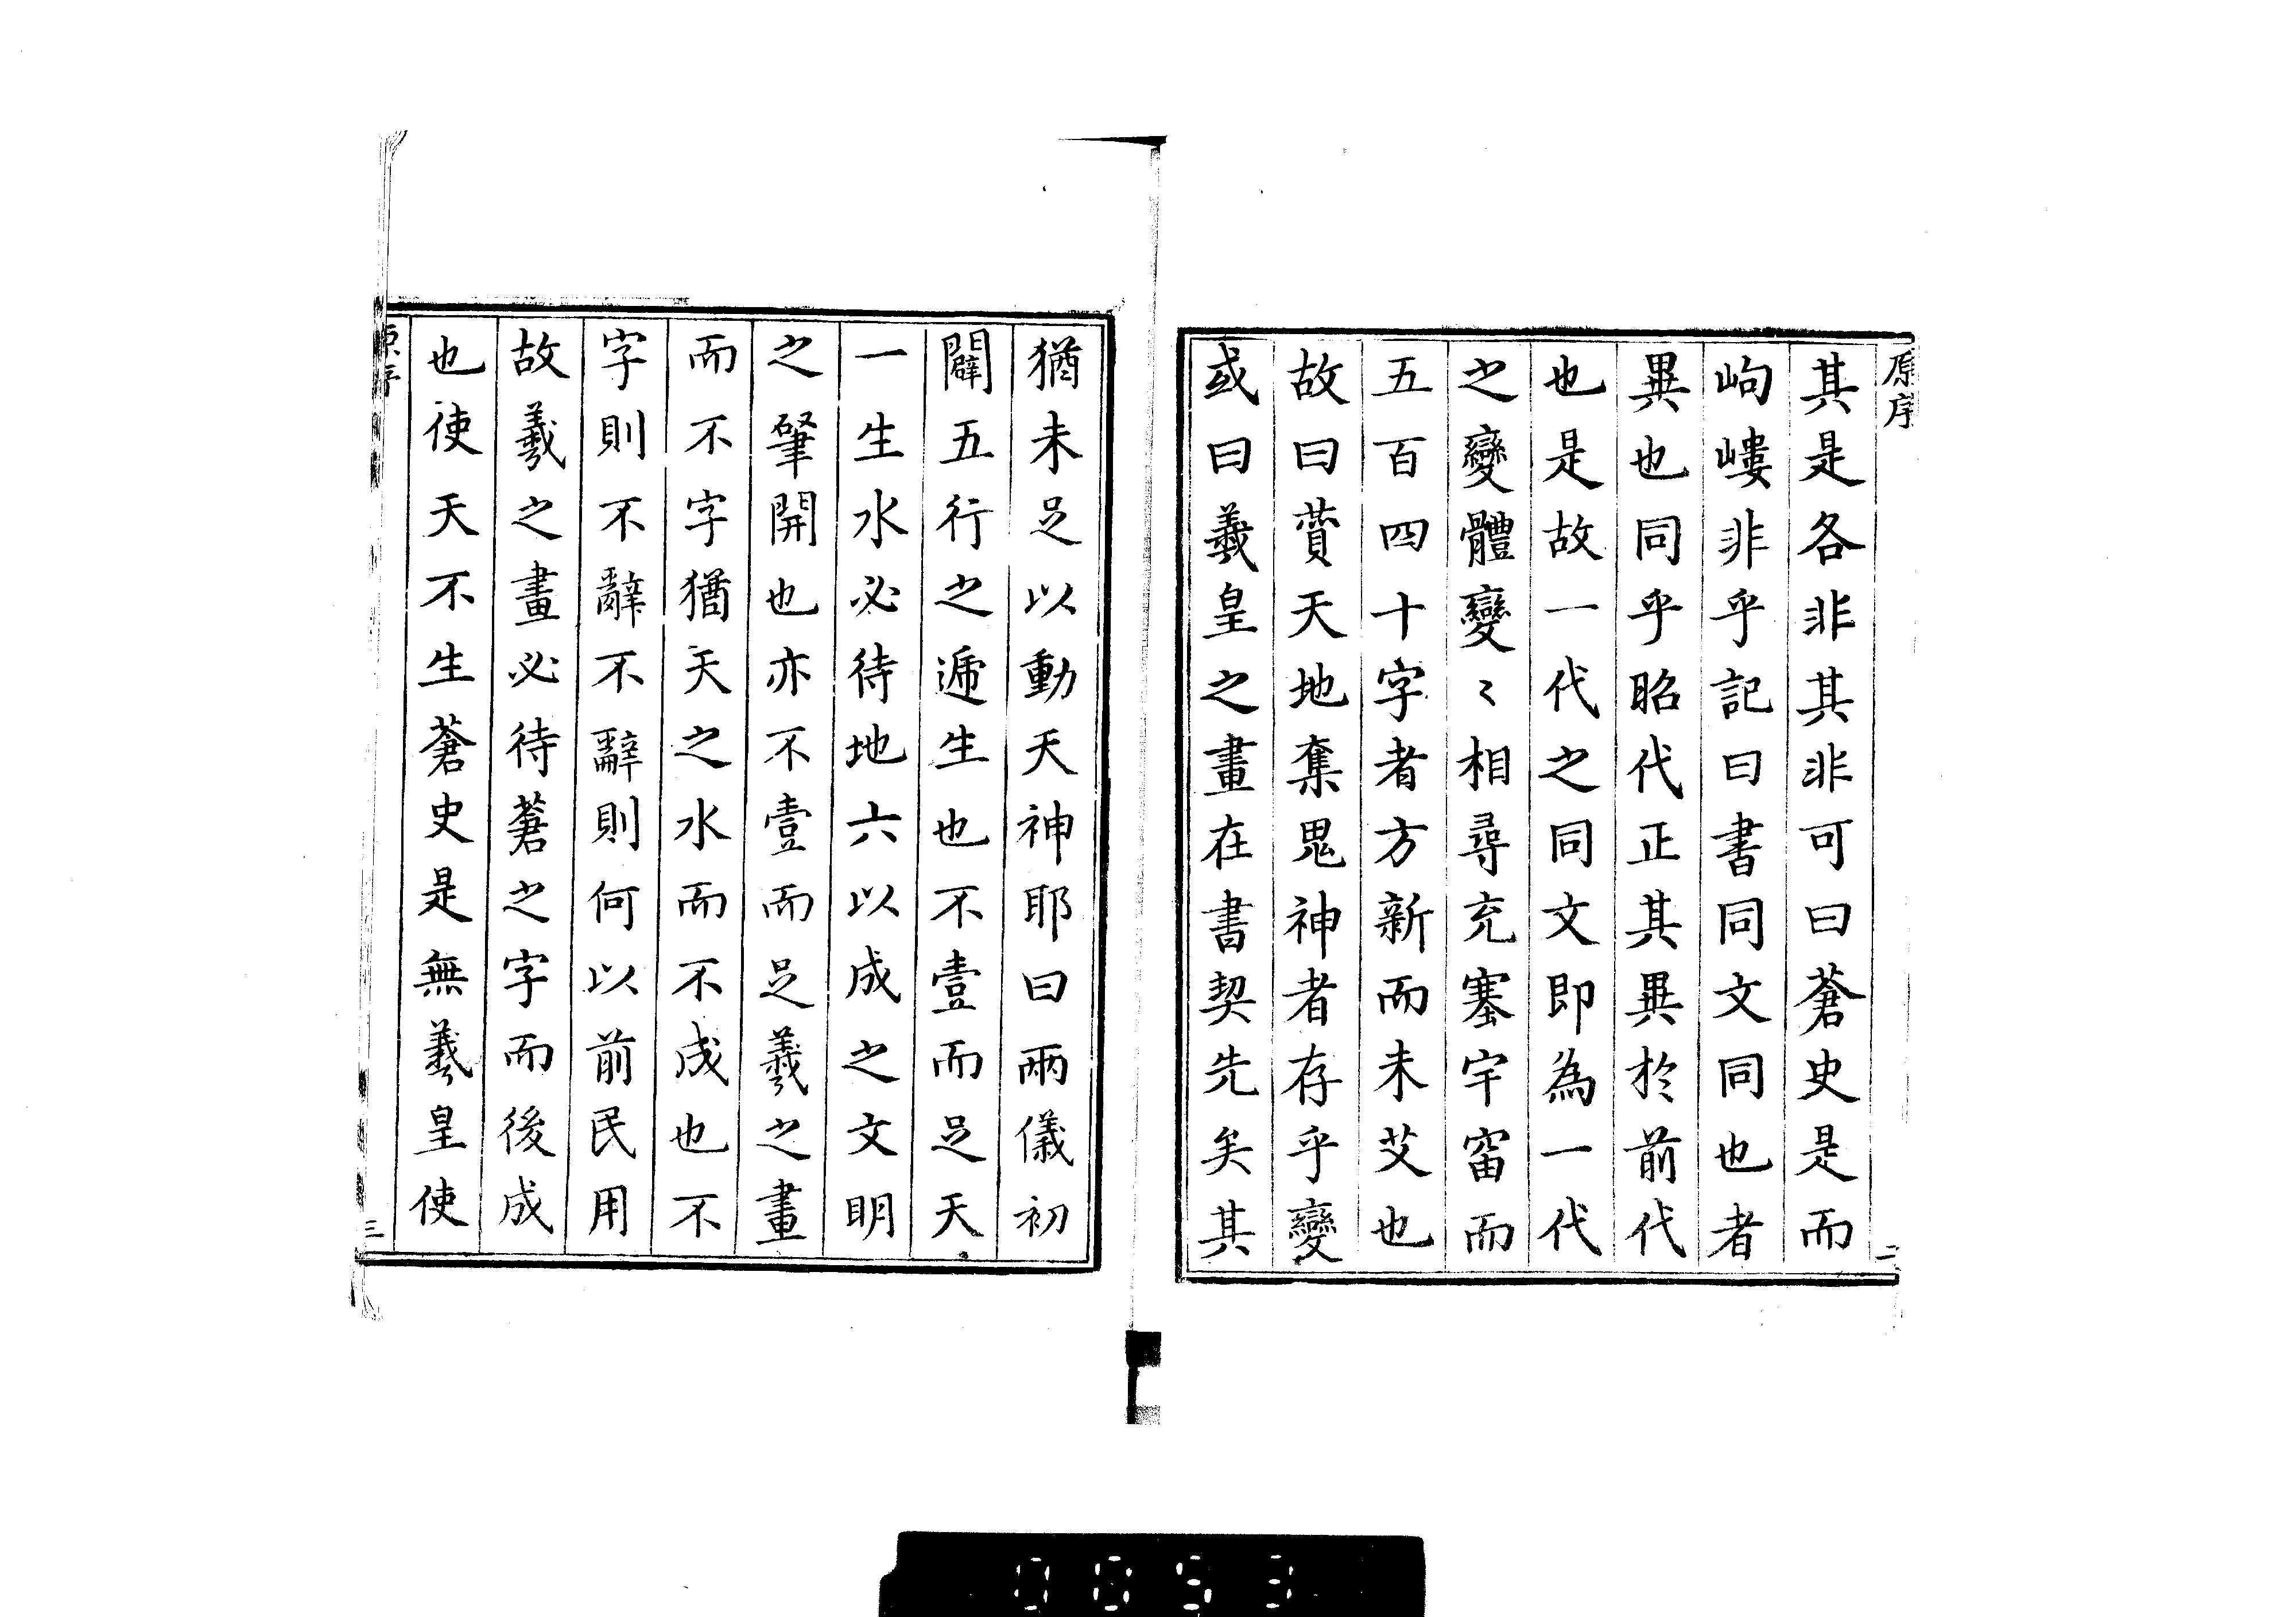 原序
其是各非其非可曰蒼史是而
岣嶁非乎記曰書同文同也者
異也同乎昭代正其異於前代
也是故一代之同文即為一代
之變體變〻相尋充塞宇宙而
五百四十字者方新而未艾也
故曰蕡天地奪鬼神者存乎變
或曰羲皇之畫在書契先矣其
二
猶未足以動天神耶曰兩儀初
闢五行之遞生也不壹而足天
一生水必待地六以成之文明
之肇開也亦不壹而足羲之畫
而不字猶天之水而不成也不
字則不辭不辭則何以前民用
故羲之畫必待蒼之字而後成
也使天不生蒼史是無羲皇使
原序
三
0653